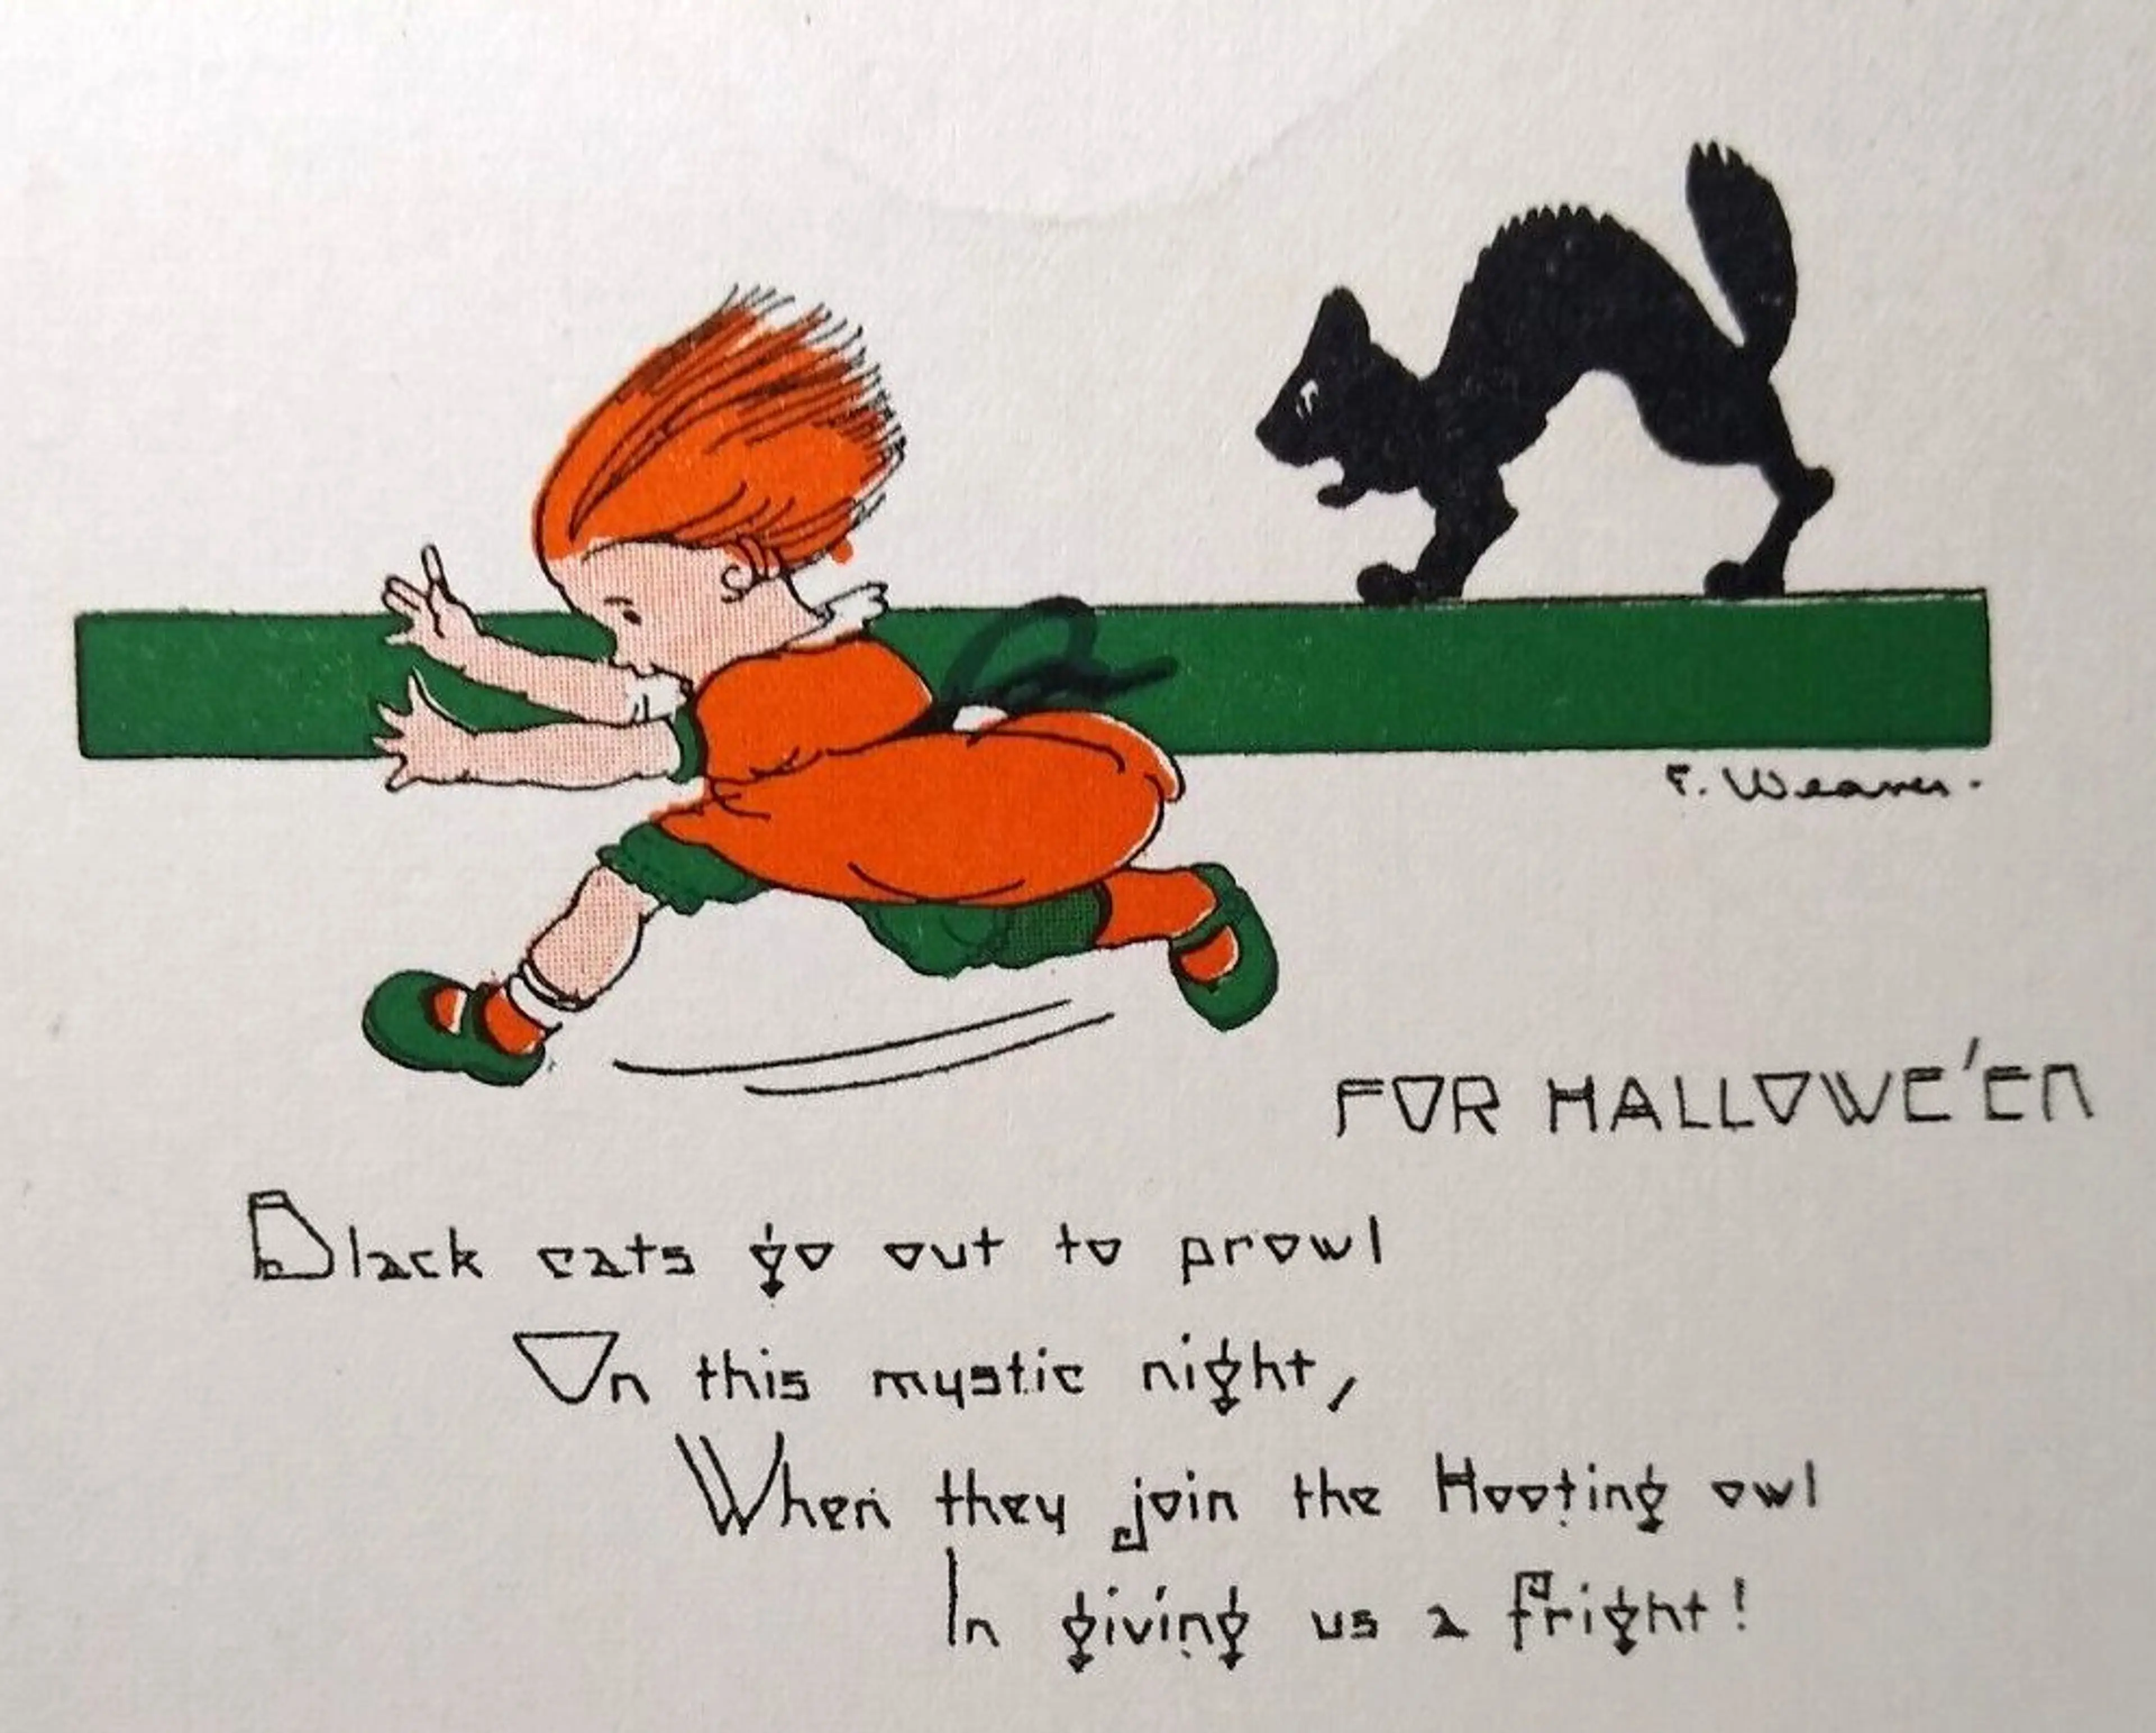 F. Weaver.
FOR HALLOWE'EN
Black cats go out to prowl
On this mystic night,
When they join the Hooting owl
In giving us a fright!